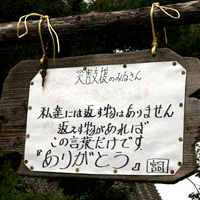 災害支援のみなさん
私達には返す物はありません
返えす物があれば
この言葉だけです
『ありがとう』